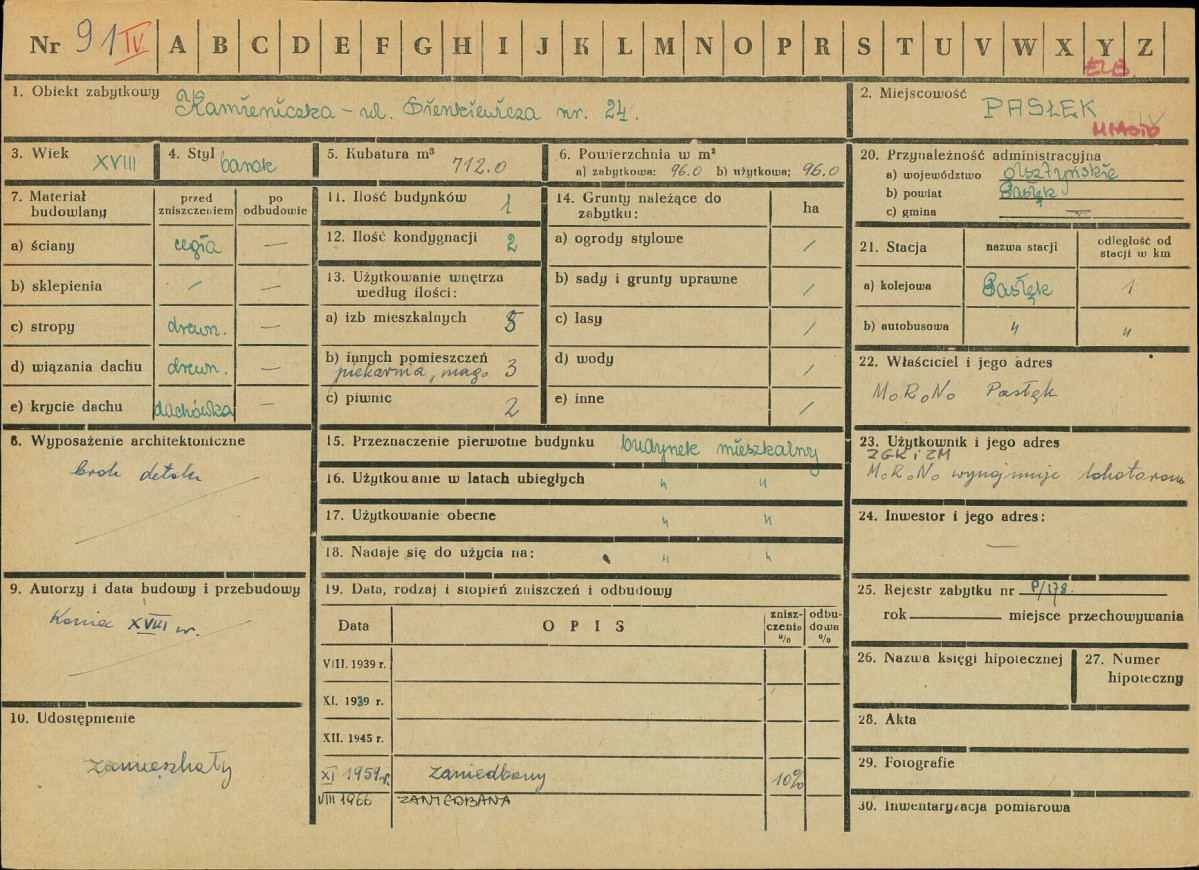 Nr 91 IV A B C D E F G H I J K L M N O P R S T U V W X Y Z
ELB.
1. Obiekt zabytkowy Kamieniczka - ul. Sienkiewicza nr. 24.
2. Miejscowość PASŁĘK
MIASTO
3. Wiek XVIII
4. Styl barok
5. Kubatura m³ 712.0
6. Powierzchnia w m²
a) zabytkowa: 96.0 b) użytkowa; 96.0
7. Materiał budowlany
przed zniszczeniem
po odbudowie
a) ściany cegła —
b) sklepienia / —
c) stropy drewn. —
d) wiązania dachu drewn. —
e) krycie dachu dachówka —
8. Wyposażenie architektoniczne
brak detalu
9. Autorzy i data budowy i przebudowy
Koniec XVIII w.
10. Udostępnienie
zamieszkały
11. Ilość budynków 1
12. Ilość kondygnacji 2
13. Użytkowanie wnętrza
według ilości:
a) izb mieszkalnych 5
b) innych pomieszczeń
piekarnia, mag. 3
c) piwnic 2
14. Grunty należące do
zabytku:
ha
a) ogrody stylowe /
b) sady i grunty uprawne /
c) lasy /
d) wody /
e) inne /
15. Przeznaczenie pierwotne budynku budynek mieszkalny
16. Użytkowanie w latach ubiegłych " "
17. Użytkowanie obecne " "
18. Nadaje się do użycia na: " "
19. Data, rodzaj i stopień zniszczeń i odbudowy
Data
OPIS
znisz-
czenia
%
odbu-
dowa
%
VIII. 1939 r.
XI. 1939 r.
XII. 1945 r.
XI 1959 r. zaniedbany 10%
VIII 1966 ZANIEDBANA
20. Przynależność administracyjna
a) województwo olsztyńskie
b) powiat Pasłęk
c) gmina —
21. Stacja
nazwa stacji
odległość od
stacji w km
a) kolejowa Pasłęk 1
b) autobusowa " "
22. Właściciel i jego adres
M.R.N. Pasłęk
23. Użytkownik i jego adres
ZGK i ZM
M.R.N. wynajmuje lokatorom
24. Inwestor i jego adres:
—
25. Rejestr zabytku nr P/178.
rok miejsce przechowywania
26. Nazwa księgi hipotecznej
27. Numer
hipoteczny
28. Akta
29. Fotografie
30. Inwentaryzacja pomiarowa